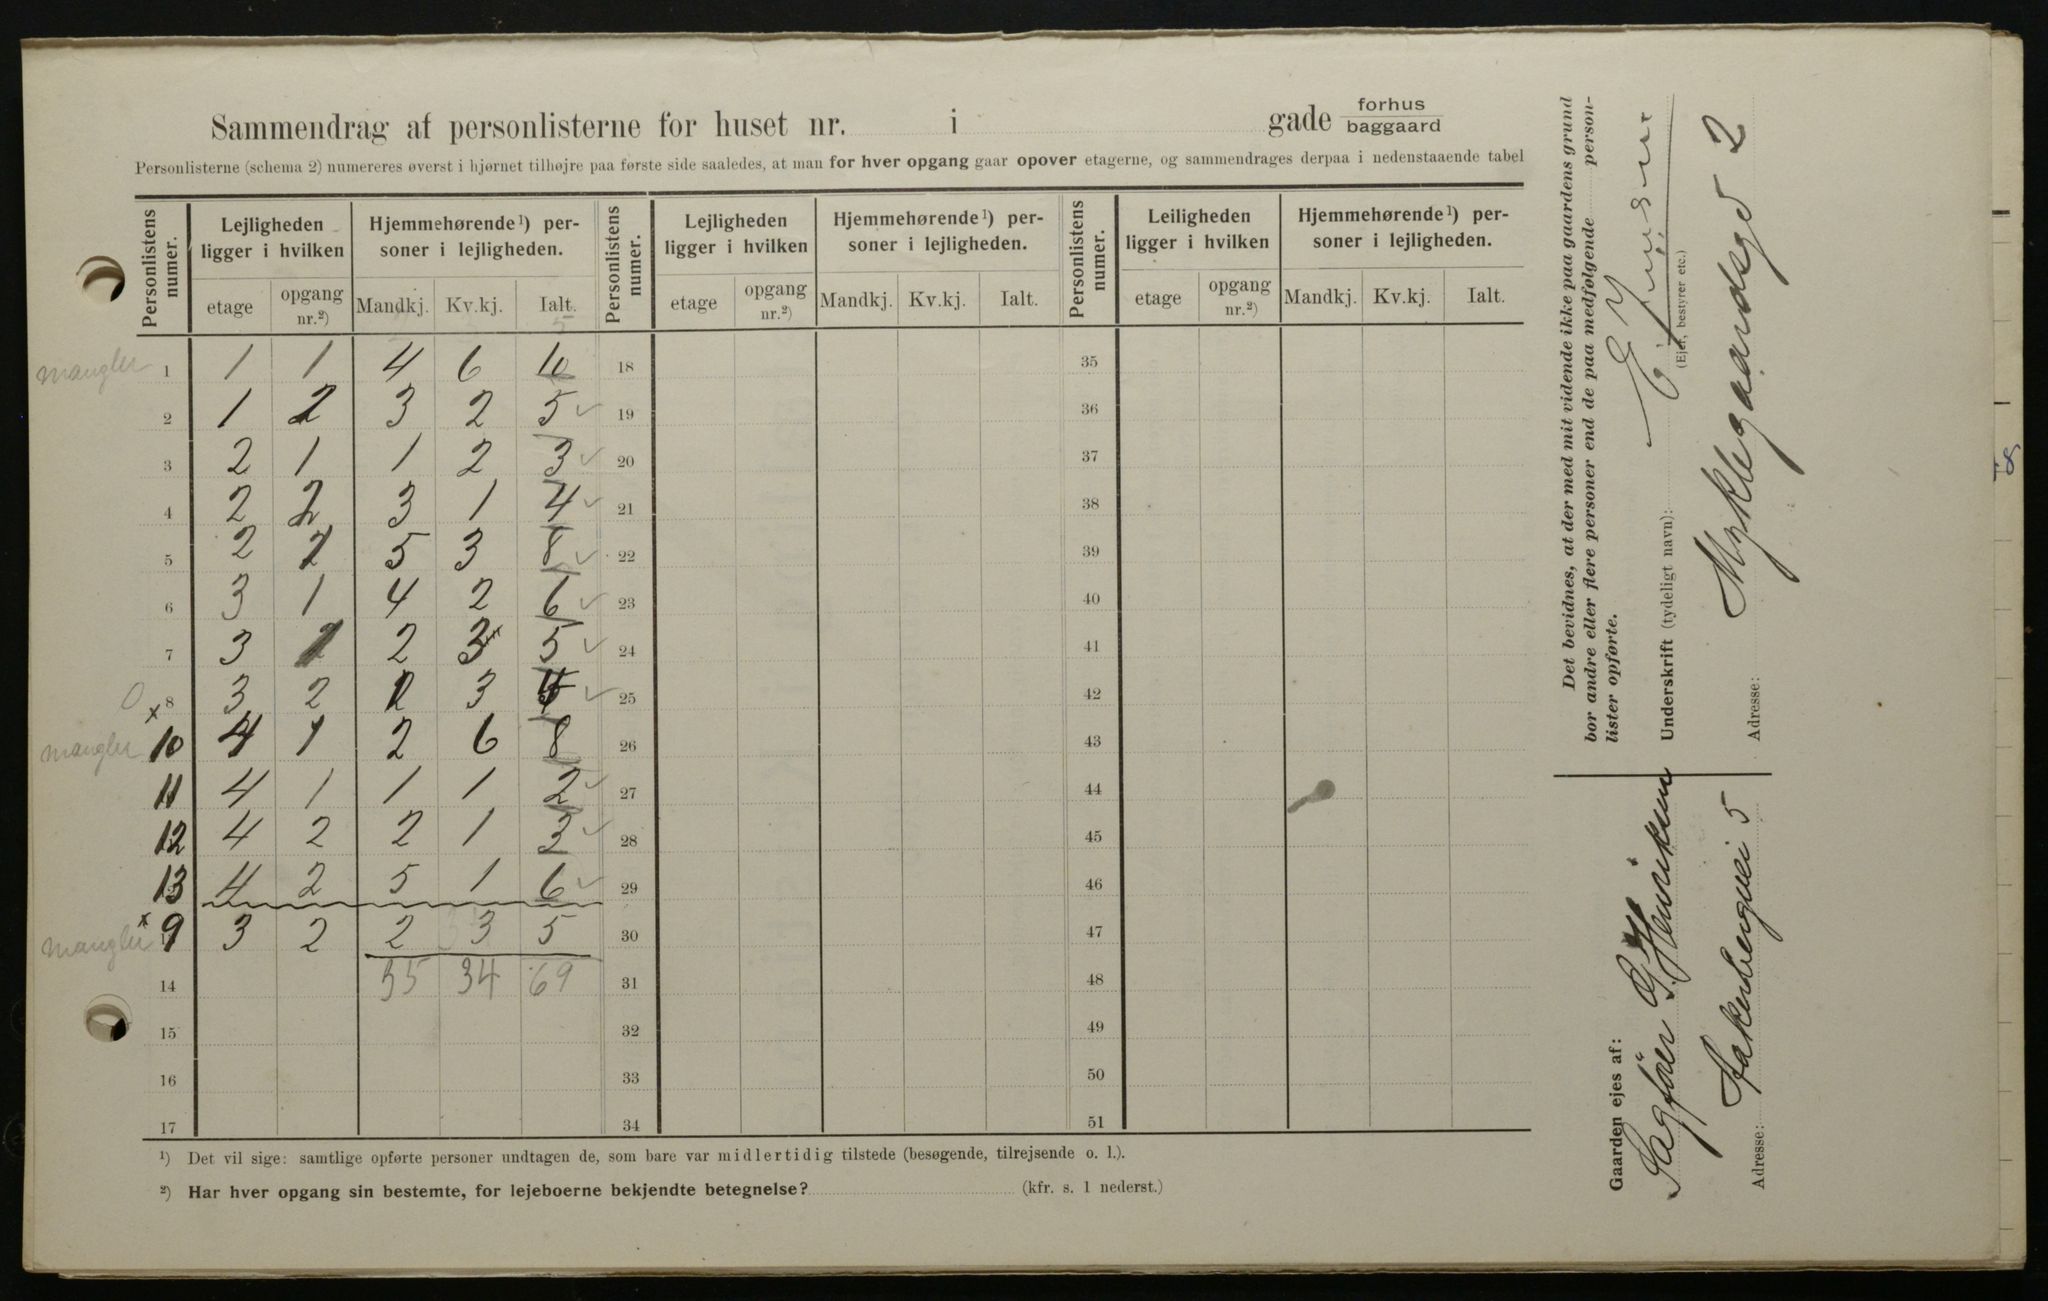 Sammendrag af personlisterne for huset nr. i gade forhus baggaard
Personlisterne (schema 2) numereres øverst i hjørnet tilhøjre paa første side saaledes, at man for hver opgang gaar opover etagerne, og sammendrages derpaa i nedenstaaende tabel
Personlistens numer. Lejligheden ligger i hvilken Hjemmehørende¹) personer i lejligheden. Personlistens numer. Lejligheden ligger i hvilken Hjemmehørende¹) personer i lejligheden. Personlistens numer. Leiligheden ligger i hvilken Hjemmehørende¹) personer i lejligheden.
etage opgang nr.²) Mandkj. Kv.kj. Ialt. etage opgang nr.²) Mandkj. Kv.kj. Ialt. etage opgang nr.²) Mandkj. Kv.kj. Ialt.
mangler 1 1 1 4 6 10 18 35
2 1 2 3 2 5 19 36
3 2 1 1 2 3 20 37
4 2 2 3 1 4 21 38
5 2 2 5 3 8 22 39
6 3 1 4 2 6 23 40
7 3 2 3 5 24 41
0 x 8 3 2 1 3 4 25 42
mangler 10 4 1 2 6 8 26 43
11 4 1 1 1 2 27 44
12 4 2 2 1 3 28 45
13 4 2 5 1 6 29 46
mangler x 9 3 2 2 3 5 30 47
14 35 34 69 31 48
15 32 49
16 33 50
17 34 51
¹) Det vil sige: samtlige opførte personer undtagen de, som bare var midlertidig tilstede (besøgende, tilrejsende o. l.).
²) Har hver opgang sin bestemte, for lejeboerne bekjendte betegnelse? (kfr. s. 1 nederst.)
Det bevidnes, at der med mit vidende ikke paa gaardens grund
bor andre eller flere personer end de paa medfølgende person-
lister opførte.
Underskrift (tydeligt navn):
(Ejer, bestyrer etc.)
Adresse: Myklegaardsgd 2
Gaarden ejes af:
Sagfører Henriksen
Adresse: Aakerbergvei 5